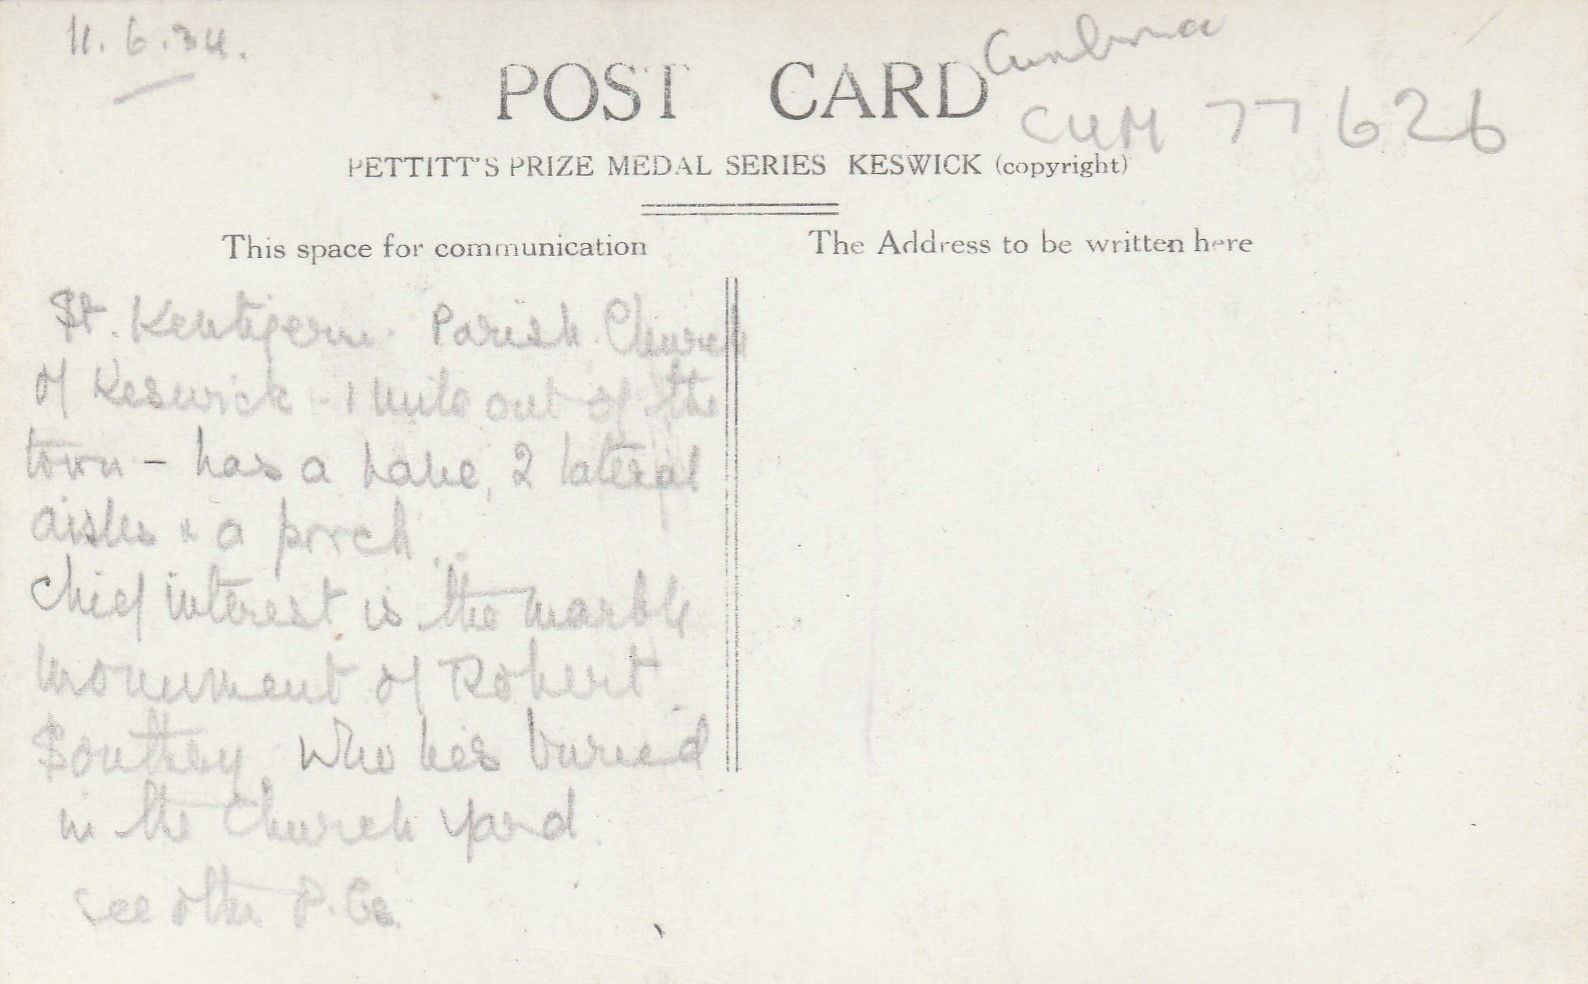 11.6.34.
Cumbria
POST CARD
CUM 77626
PETTITT'S PRIZE MEDAL SERIES KESWICK (copyright)
This space for communication
The Address to be written here
St. Kentigern. Parish Church
of Keswick - 1 mile out of the
town - has a nave, 2 lateral
aisles & a porch.
Chief interest is the marble
monument of Robert
Southey who lies buried
in the Church yard.
See other P.Cs.